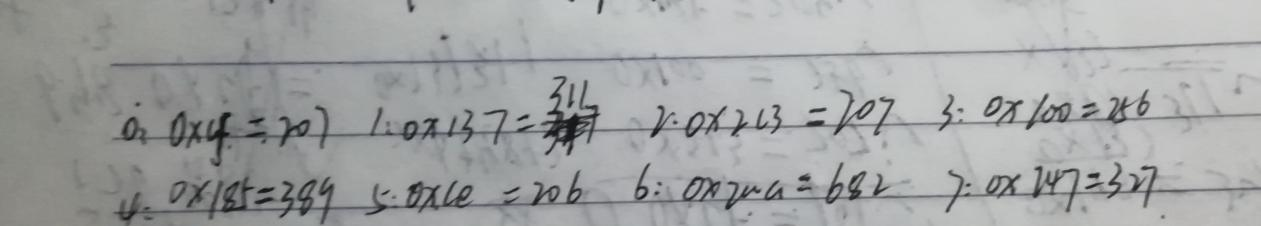 0: 0xcf = 207 1: 0x137 = 311 2: 0x2c3 = 707 3: 0x100 = 256
4: 0x185 = 389 5: 0xce = 206 6: 0x2aa = 682 7: 0x147 = 327